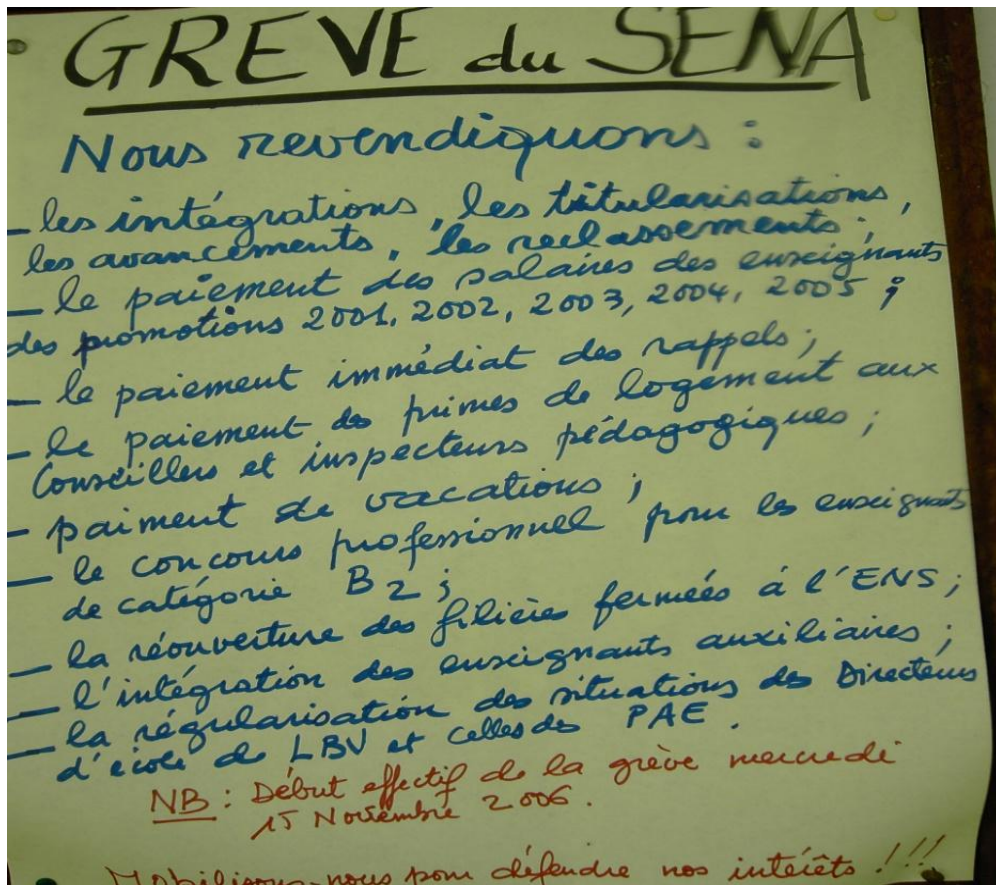 GREVE du SENA
Nous revendiquons :
_ les intégrations, les titularisations,
les avancements, les reclassements ;
_ le paiement des salaires des enseignants
des promotions 2001, 2002, 2003, 2004, 2005 ;
_ le paiement immédiat des rappels ;
_ le paiement des primes de logement aux
Conseillers et inspecteurs pédagogiques ;
- paiment de vacations ;
_ le concours professionnel pour les enseignants
de catégorie B2 ;
_ la réouverture des filières fermées à l'ENS ;
_ l'intégration des enseignants auxiliaires ;
_ la régularisation des situations des Directeurs
d'école de LBV et celles des PAE.
NB : Début effectif de la grève mercredi
15 Novembre 2006.
Mobilisons-nous pour défendre nos intérêts !!!